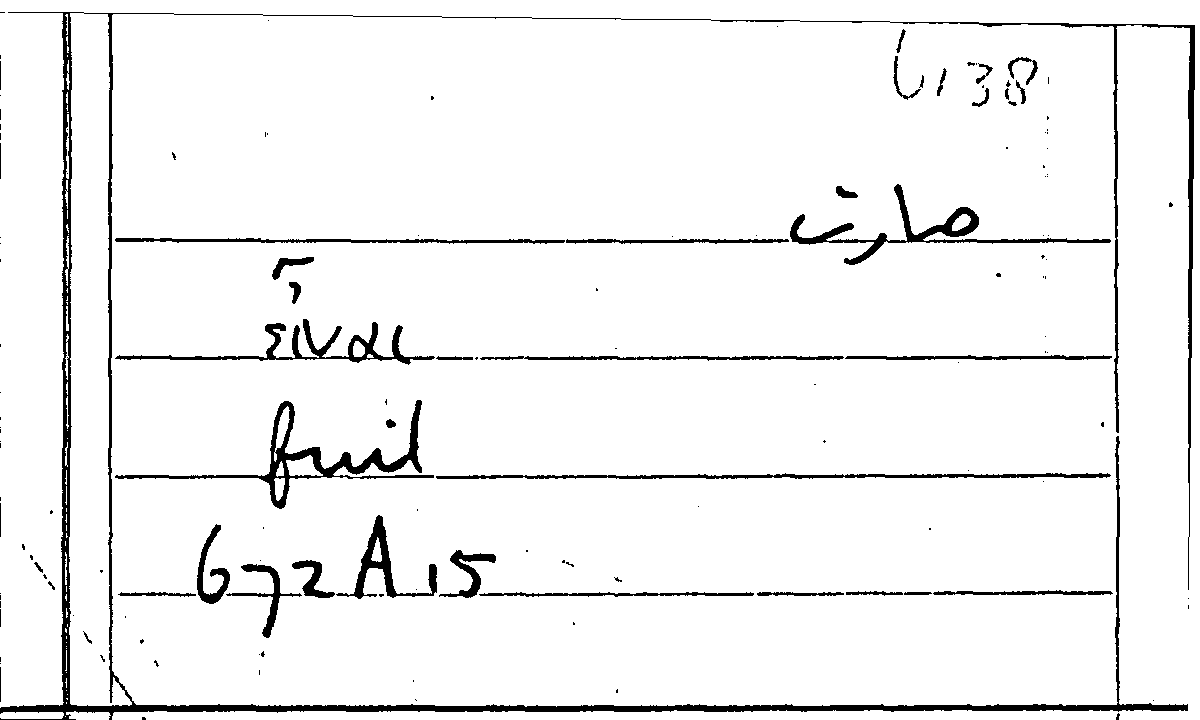 6,38
صارت
εἶναι
fuit
672 A 15